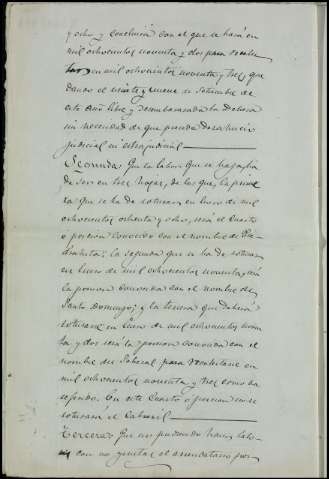 y ocho y concluirá con el que se hará en
mil ochocientos noventa y dos para
en mil ochocientos noventa y tres que
dando el veinte y nueve de Setiembre de
este año libre y desembarazada la Dehesa
sin necesidad de que preceda desahucio
judicial ni extrajudicial
Segunda: Que la labor que se haga ha
de ser en tres hojas, de las que, la prime
ra que se ha de roturar en Enero de mil
ochocientos ochenta y ocho, será el Cuarto
o porcion conocido con el nombre de
la segunda que se ha de roturar
en Enero de mil ochocientos noventa, será
la porcion conocida con el nombre de
Santo Domingo; y la tercera que deberá
roturarse en Enero de mil ochocientos noven
ta y dos será la porcion conocida con el
nombre del para sembrarse en
mil ochocientos noventa y tres como ha
En este Cuarto o porcion no se
roturará el
Tercera: Que no pudiendo hacer labo
con no yuntas el arrendatario por